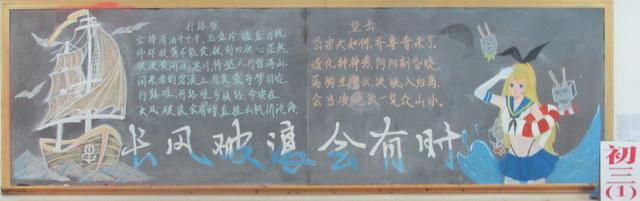 行路难
金樽清酒斗十千，玉盘珍羞直万钱。
停杯投箸不能食，拔剑四顾心茫然。
欲渡黄河冰塞川，将登太行雪满山。
闲来垂钓碧溪上，忽复乘舟梦日边。
行路难，行路难，多歧路，今安在？
长风破浪会有时，直挂云帆济沧海。
望岳
岱宗夫如何，齐鲁青未了。
造化钟神秀，阴阳割昏晓。
荡胸生层云，决眦入归鸟。
会当凌绝顶，一览众山小。
长风破浪会有时
初三(1)